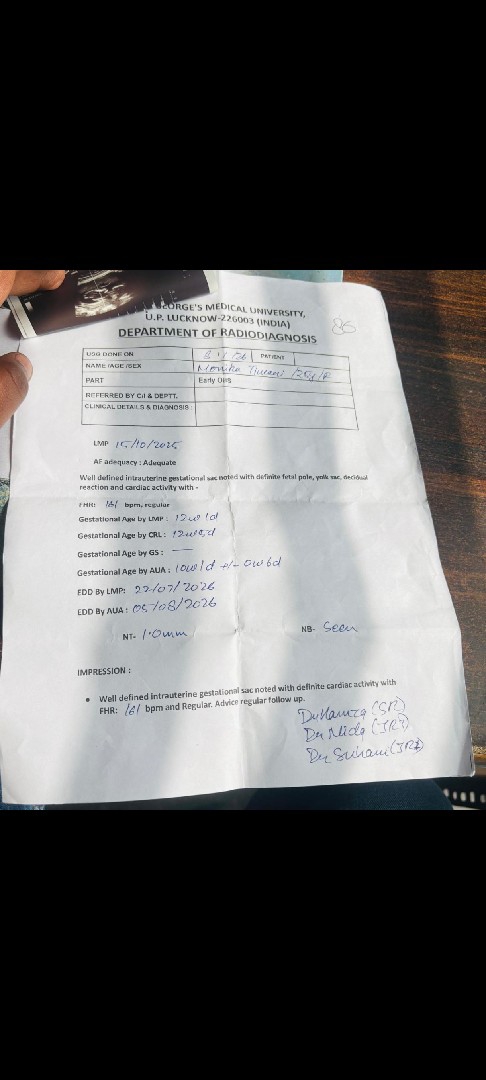 GEORGE'S MEDICAL UNIVERSITY,
U.P. LUCKNOW-226003 (INDIA)
86
DEPARTMENT OF RADIODIAGNOSIS
USG DONE ON /26 PATIENT
NAME /AGE /SEX Monika
PART Early OBS
REFERRED BY C/I & DEPTT.
CLINICAL DETAILS & DIAGNOSIS :
LMP 15/10/2025
AF adequacy : Adequate
Well defined intrauterine gestational sac noted with definite fetal pole, yolk sac, decidual
reaction and cardiac activity with -
FHR: 161 bpm, regular
Gestational Age by LMP : 12w1d
Gestational Age by CRL : 12w
Gestational Age by GS : —
Gestational Age by AUA : 10w1d +/- 0w6d
EDD By LMP: 22/07/2026
EDD By AUA : 05/08/2026
NT- 1.0mm NB- Seen
IMPRESSION :
• Well defined intrauterine gestational sac noted with definite cardiac activity with
FHR: 161 bpm and Regular. Advice regular follow up.
Dr Hamza (SR)
Dr Nida (JR)
Dr (JR)